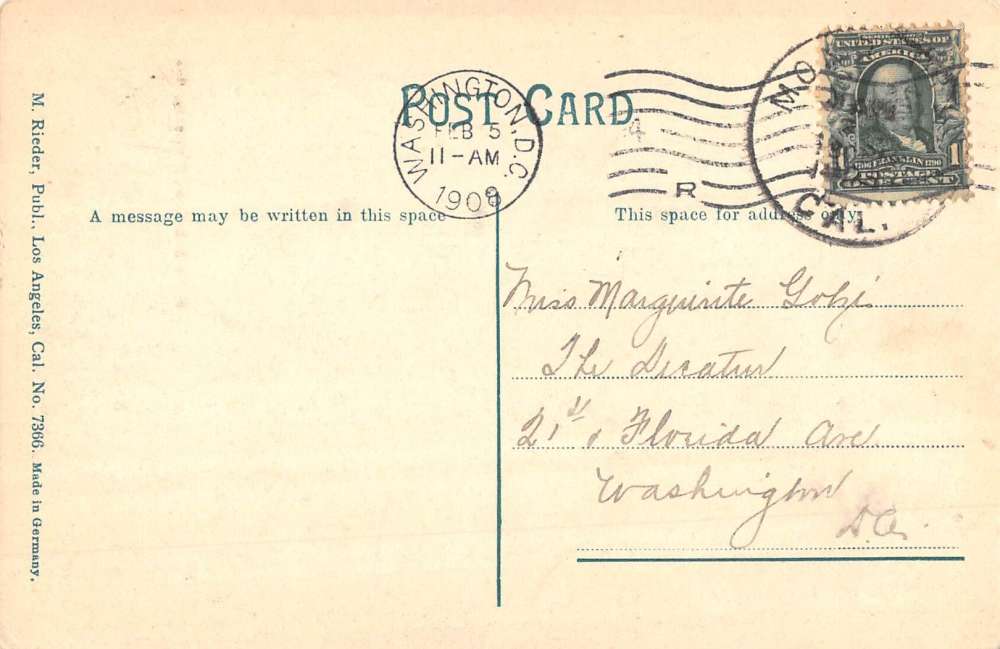 POST CARD
WASHINGTON, D.C.
FEB 5
11-AM
1908
R
MO
CAL.
UNITED STATES OF
AMERICA
1706 FRANKLIN 1790
1
POSTAGE
ONE CENT
A message may be written in this space
This space for address only.
Miss Marguirite
The Decatur
21st & Florida Ave
Washington
D.C.
M. Rieder, Publ., Los Angeles, Cal. No. 7366. Made in Germany.